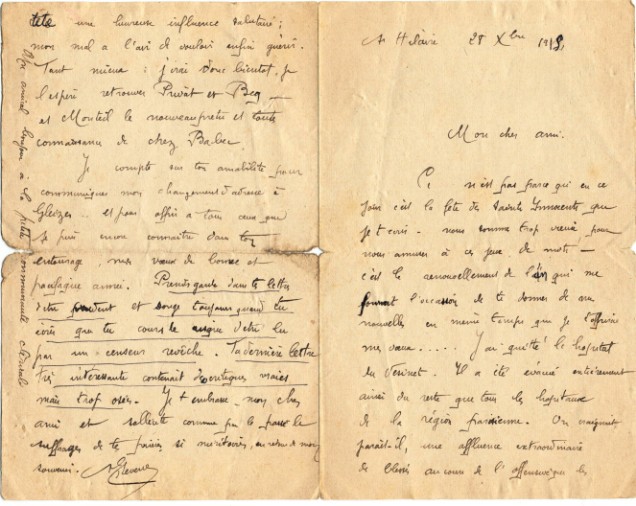 St Hilaire 28 Xbre 1918
Mon cher ami.
Ce n'est pas parce qui en ce
jour c'est la fête des Saints Innocents que
je t'écris - nous sommes trop vieux pour
nous amuser à ces jeux de mots -
c'est le renouvellement de l'an qui me
fournit l'occasion de te donner de mes
nouvelles en même temps que je t'offrirai
mes vœux..... J'ai quitté l'hopital
du Vésinet. Il a été évacué entièrement
ainsi du reste que tous les hopitaux
de la région parisienne. On craignait
paraît-il, une affluence extraordinaire
de blessés au cours de l'offensive que les
une heureuse influence salutaire;
mon mal a l'air de vouloir enfin guérir.
Tant mieux: j'irai donc bientôt, je
l'espère retrouver Privat et Becq -
et Monteil le nouveau prêtre et toute
connaissance de chez Babec.
Je compte sur ton amabilité pour
communiquer mon changement d'adresse à
et pour offrir à tous ceux que
je puis encore connaître dans ton
entourage, mes vœux de bonne et
année. Prends garde dans tes lettres
d'être prudent et songe toujours quand tu
écris que tu cours le risque d'être lu
par un censeur revêche. Ta dernière lettre
très intéressante contenait de critiques vraies
mais trop osées. Je t'embrasse mon cher
ami et sollicite comme par le passé le
suffrage de tes prières si méritoires, en retour de mon
souvenir.
Mon amical bonjour à la petite communauté cléricale